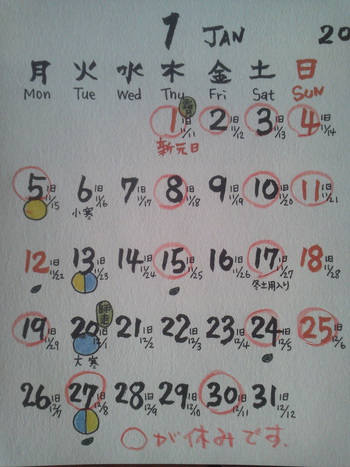 1 JAN 20
月 火 水 木 金 土 日
Mon Tue Wed Thu Fri Sat SUN
1 旧11/11 2 旧11/12 3 旧11/13 4 旧11/14
新元日
5 旧11/15 6 旧11/16 7 旧11/17 8 旧11/18 9 旧11/19 10 旧11/20 11 旧11/21
小寒
12 旧11/22 13 旧11/23 14 旧11/24 15 旧11/25 16 旧11/26 17 旧11/27 18 旧11/28
冬土用入り
19 旧11/29 20 旧12/1 21 旧12/2 22 旧12/3 23 旧12/4 24 旧12/5 25 旧12/6
大寒
26 旧12/7 27 旧12/8 28 旧12/9 29 旧12/10 30 旧12/11 31 旧12/12
○が休みです.